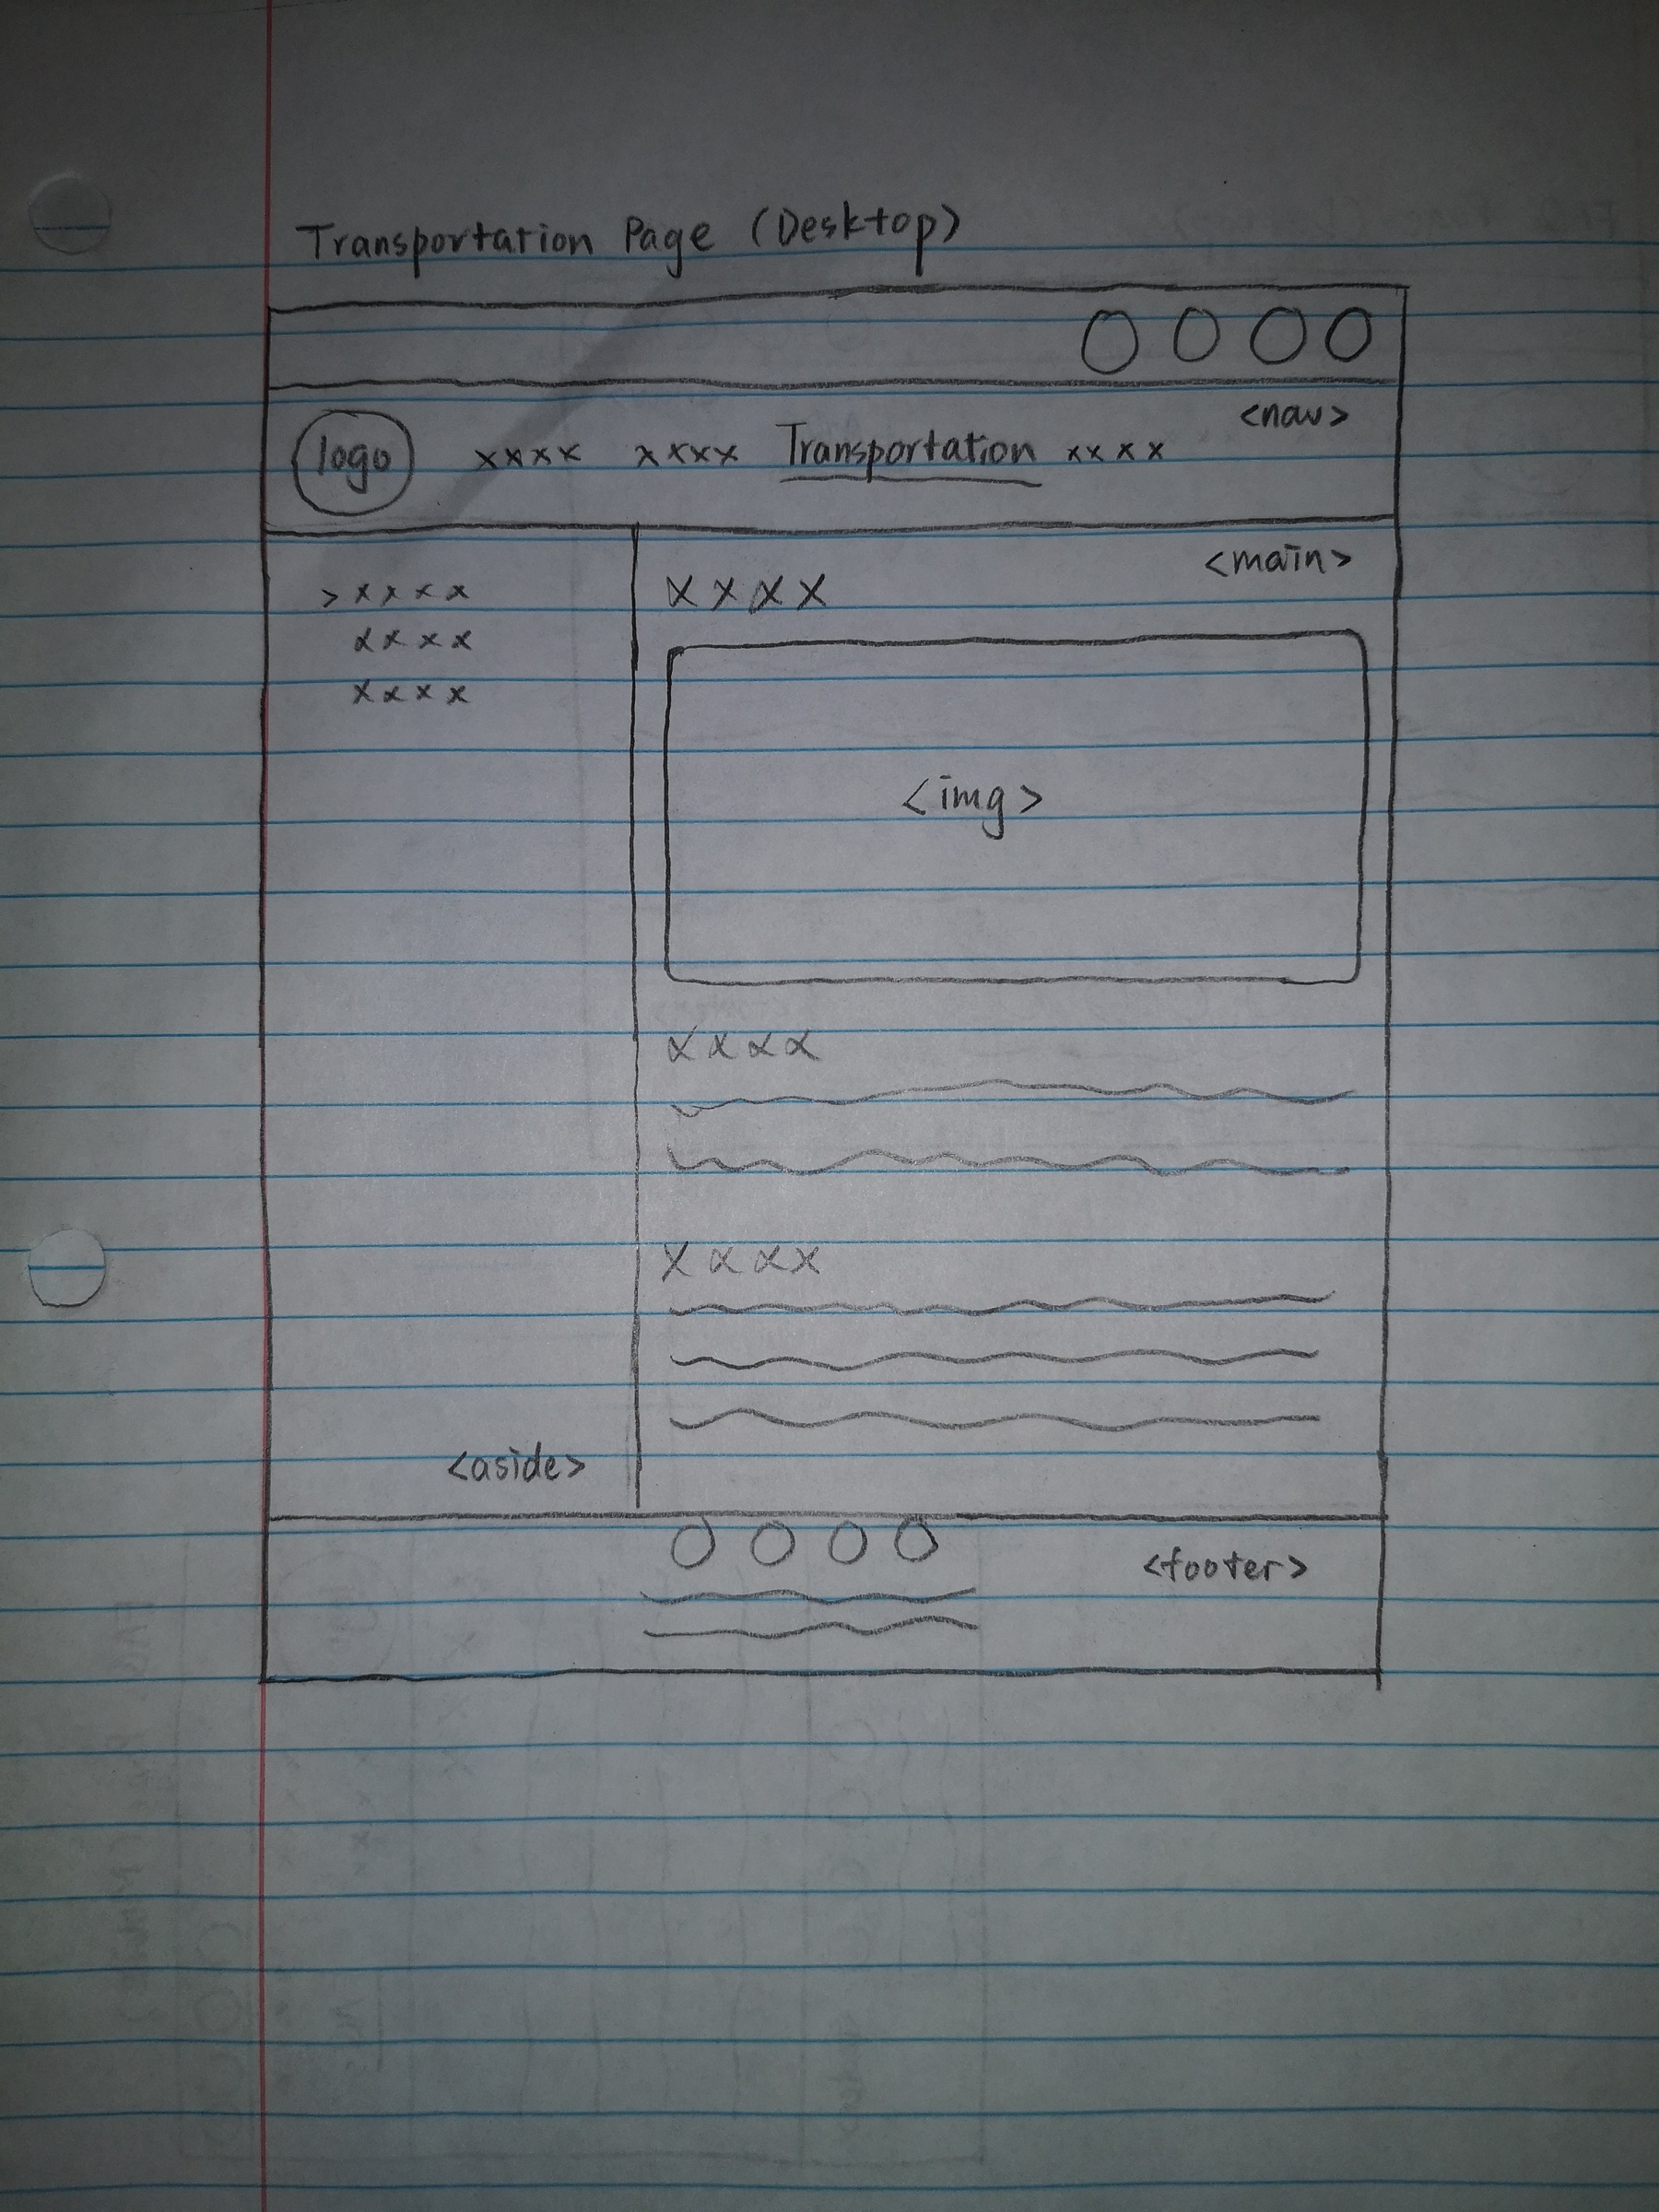 Transportation Page (Desktop)
<nav>
logo xxxx xxxx Transportation xxxx
<main>
> xxxx
xxxx
xxxx
xxxx
<img>
xxxx
xxxx
<aside>
<footer>